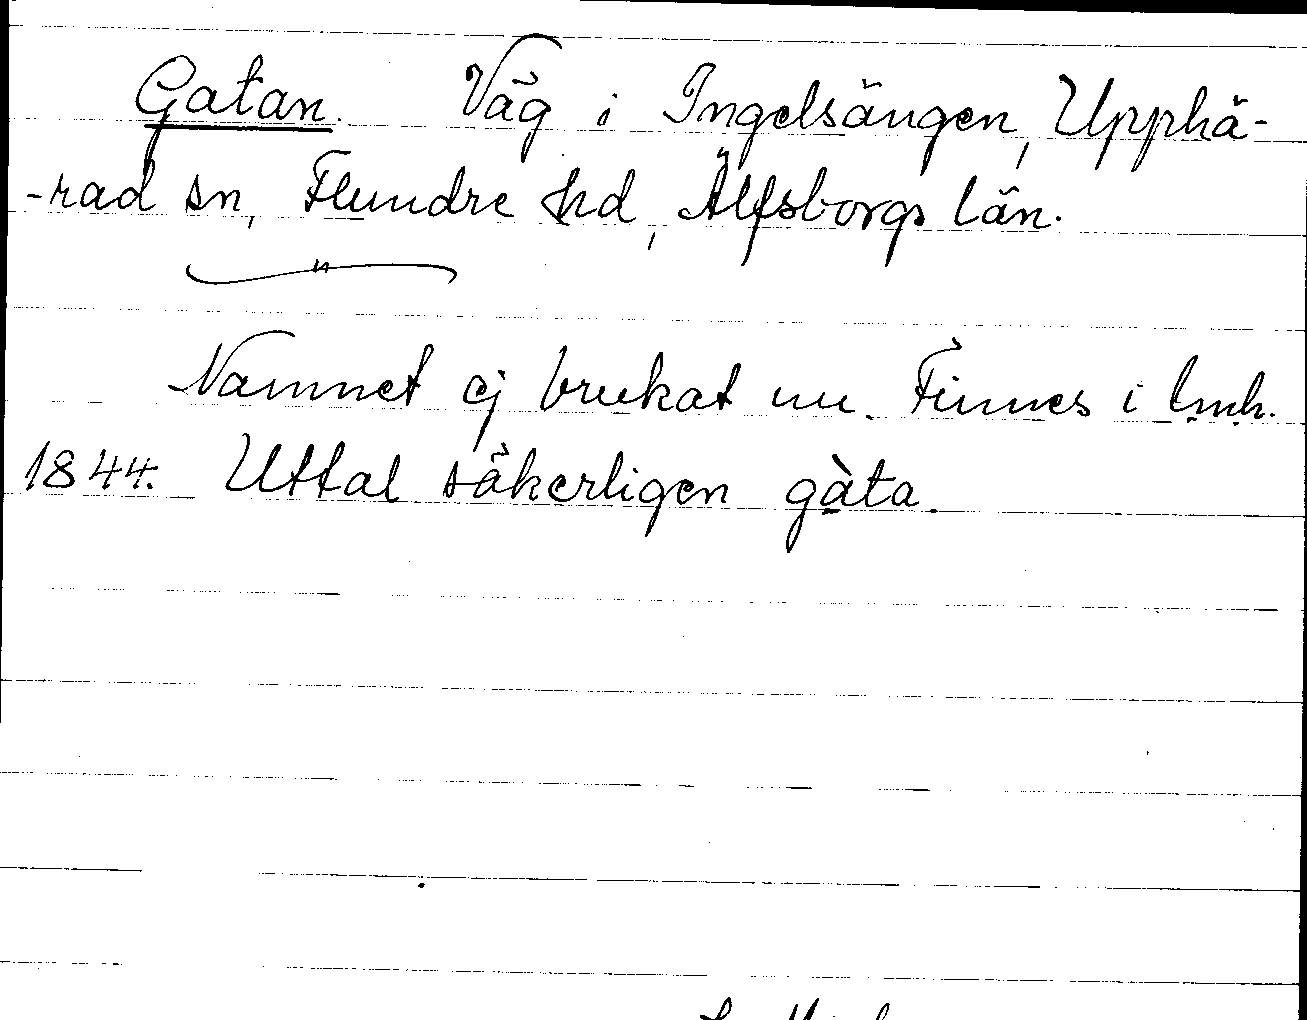 Gatan. Väg i Ingelsängen, Upphä-
-rad sn, Flundre hd, Älfsborgs län.
Namnet ej brukat nu. Finnes i lmh.
1844. Uttal säkerligen gàta.